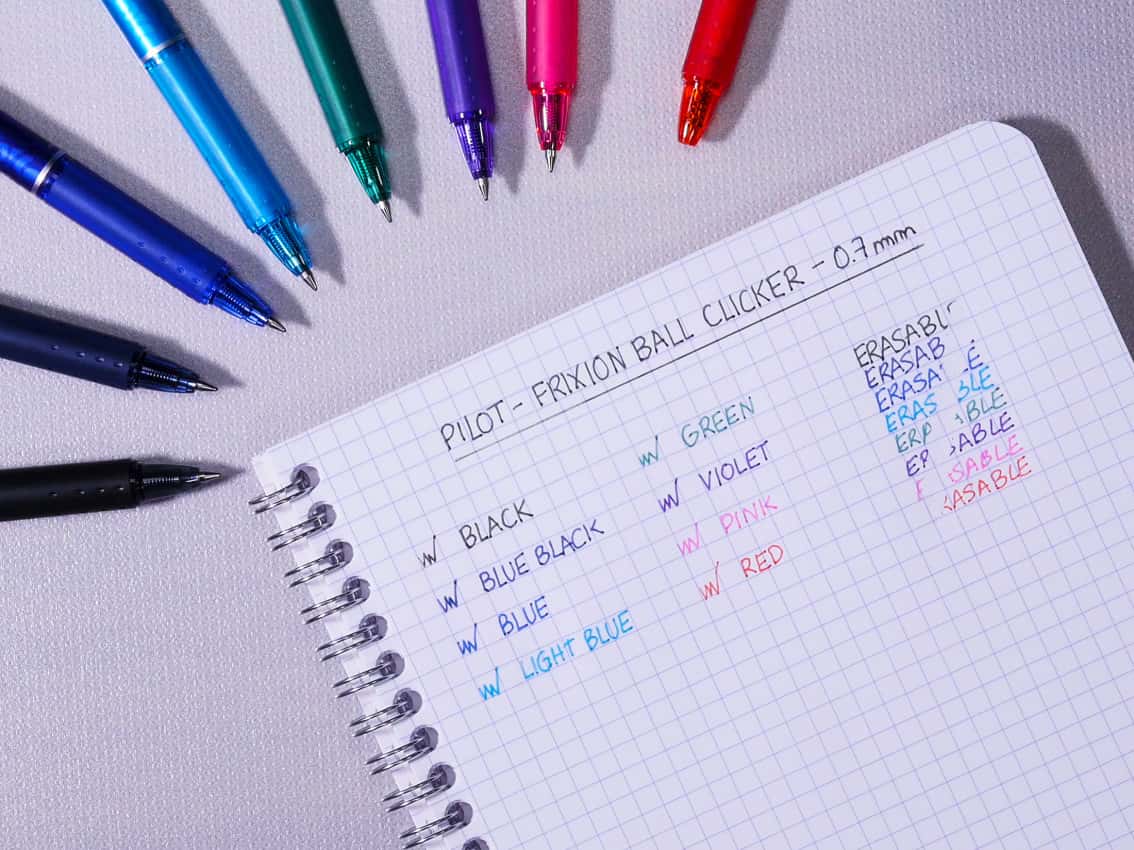 PILOT - FRIXION BALL CLICKER - 0.7 mm
BLACK
BLUE BLACK
BLUE
LIGHT BLUE
GREEN
VIOLET
PINK
RED
ERASABL
ERASAB
ERASA LE
ERAS BLE
ER ABLE
E SABLE
E SABLE
ASABLE